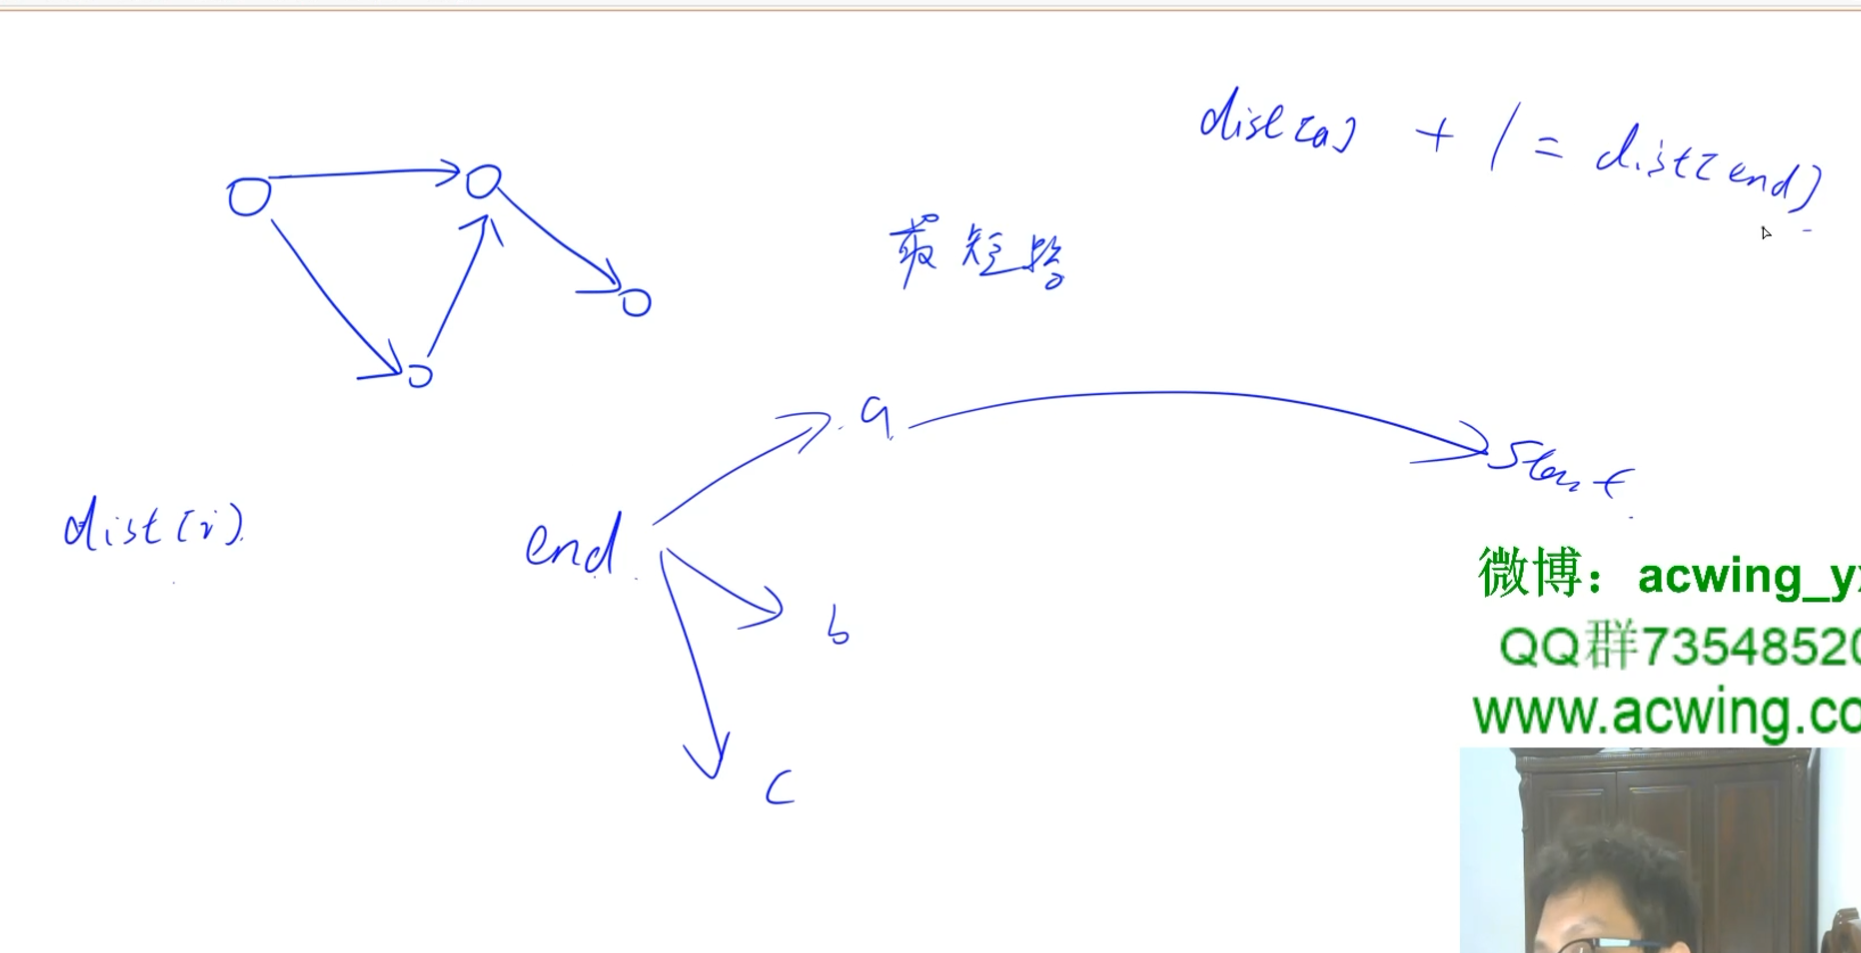 dist[a] + 1 = dist[end]
最短路
a
start
dist(i)
end
b
c
微博：acwing_y
QQ群7354852
www.acwing.c